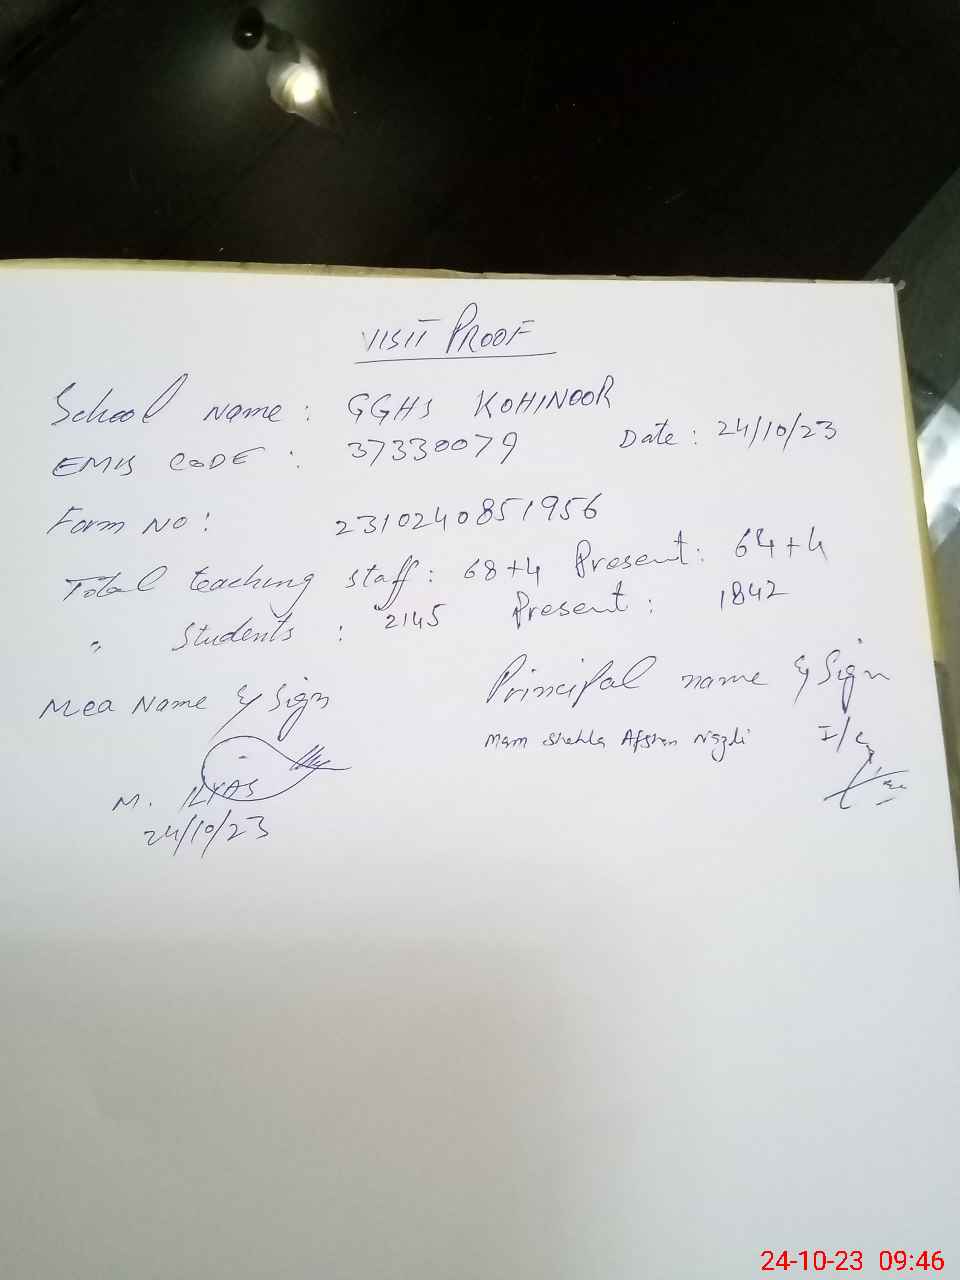 VISIT PROOF
School Name : GGHS KOHINOOR
EMIS CODE : 37330079 Date : 24/10/23
Form No : 2310240851956
Total teaching staff : 68+4 Present : 64+4
" Students : 2145 Present : 1842
Mea Name & Sign Principal name & Sign
Mam Shehla Afshan I/c
M. ILYAS
24/10/23
24-10-23 09:46